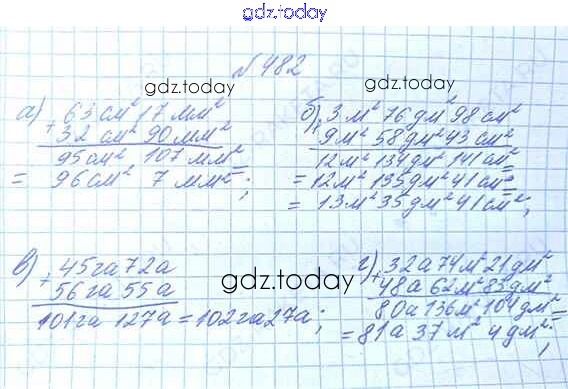 gdz.today
№482
gdz.today
gdz.today
а) + 63 см² 17 мм²
32 см² 90 мм²
95 см² 107 мм² =
= 96 см² 7 мм²;
б) + 3 м² 76 дм² 98 см²
9 м² 58 дм² 43 см²
12 м² 134 дм² 141 см² =
= 12 м² 135 дм² 41 см² =
= 13 м² 35 дм² 41 см²;
в) + 45 га 72 а
56 га 55 а
101 га 127 а = 102 га 27 а;
gdz.today
г) + 32 а 74 м² 21 дм²
48 а 62 м² 83 дм²
80 а 136 м² 104 дм² =
= 81 а 37 м² 4 дм²;